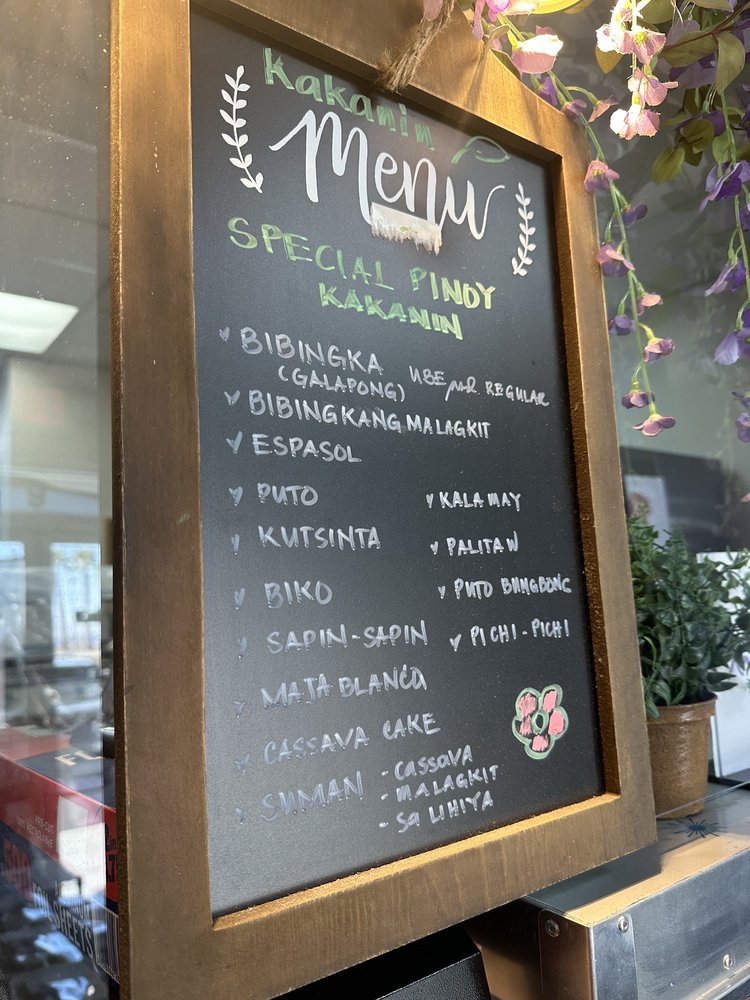 Kakanin
Menu
SPECIAL PINOY
KAKANIN
BIBINGKA
(GALAPONG) UBE and REGULAR
BIBINGKANG MALAGKIT
ESPASOL
PUTO
KUTSINTA
BIKO
SAPIN-SAPIN
MAJA BLANCA
CASSAVA CAKE
SUMAN - CASSAVA
- MALAGKIT
- SA LIHIYA
KALAMAY
PALITAW
PUTO BUNGBONG
PICHI-PICHI
FOIL SHEETS